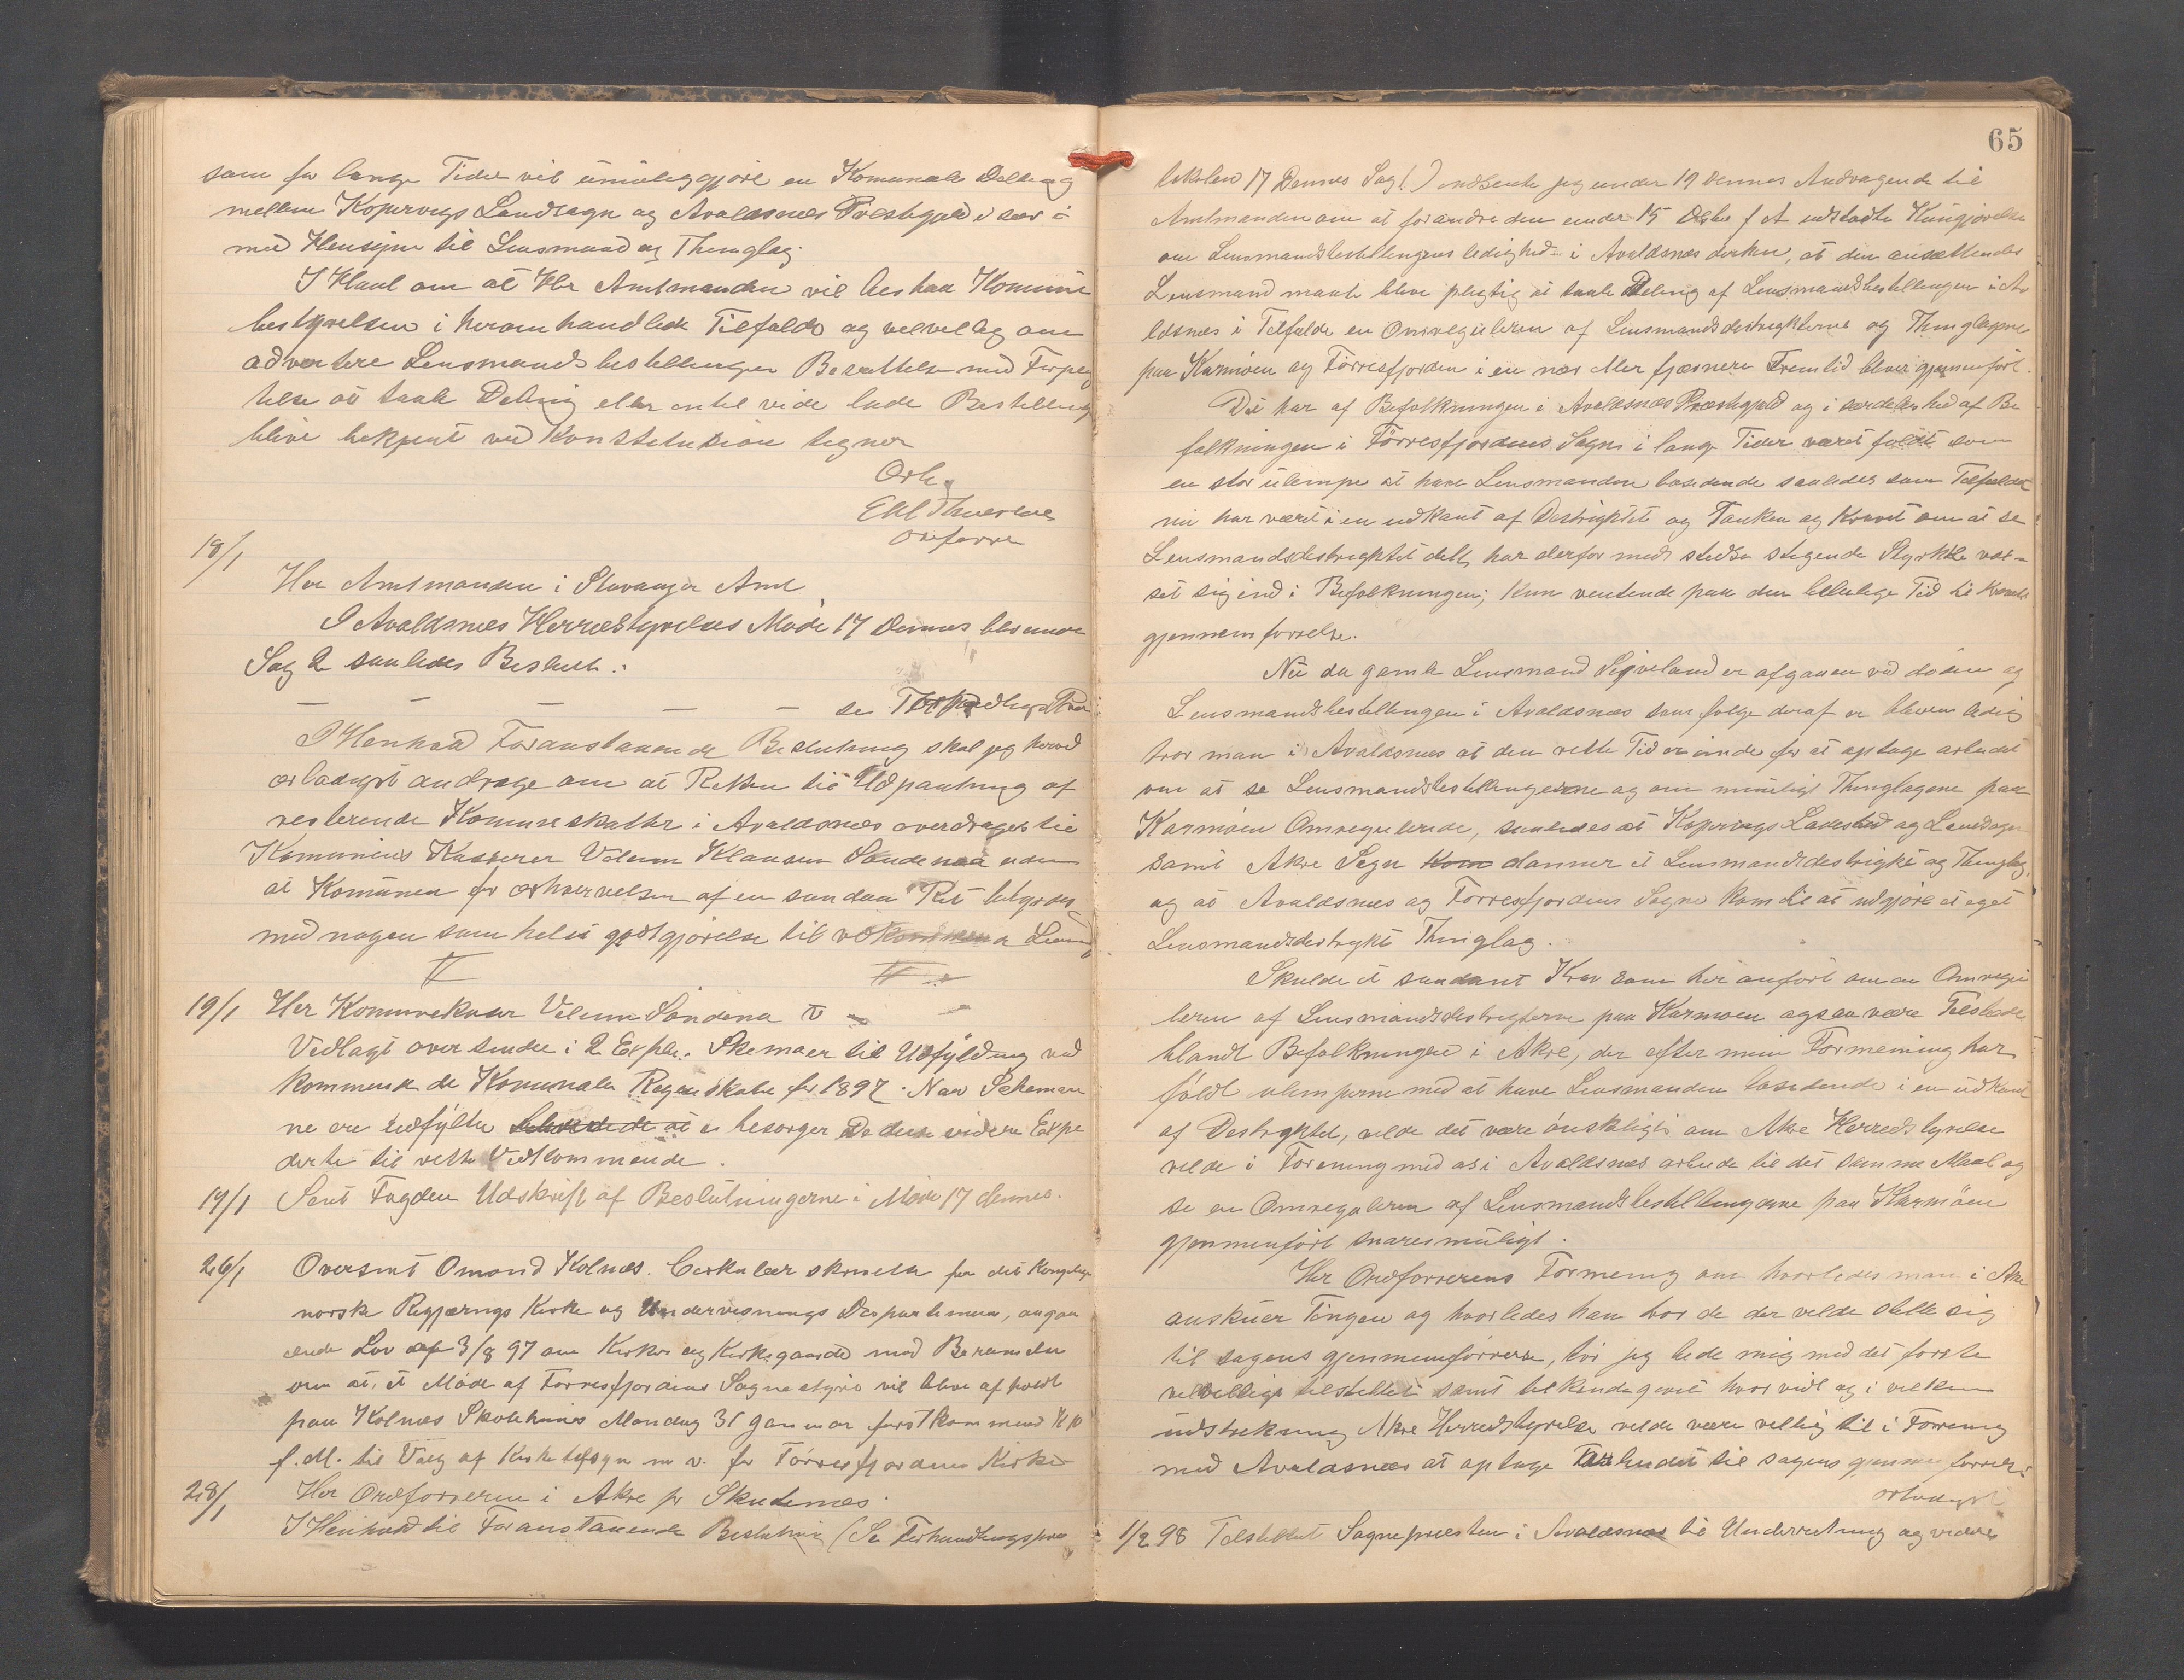 som for lange Tider vil umuliggjøre en Komunale Deling
mellem Kopervigs Landsogn og Avaldsnes Prestegjeld især i
med Hensyn til Lensmand og Thinglag.
I Haab om at Hr Amtmanden vil beskaa Komune
bestyrelsen i heromhandlede Tilfælde og velvillig om
advertere Lensmandsbestillingen Besættelse med Forplig
telse at taale Deling eller indtil videre lade Bestillingen
blive bekjent ved Konstitution tegner
Erb.
ordfører
18/1
Her Amtmanden i Stavanger Amt
I Avaldsnes Herredstyrelses Møde 17 Dennes blev under
Sag 2 saaledes Beslutt.:
— — — — — se Forhandlingsprot
I Henhold Foranstaaende Beslutning skal jeg herved
ærbødigst andrage om at Retten til Udpantning af
resterende Komuneskatter i Avaldsnes overdrages til
Komunens Kasserer Villum Klausen Søndenaa uden
at Komunen for erhvervelsen af en saadan Ret betynges
med nogen som helst godtgjørelse til vedkommende Lensm
19/1 Her Komunekasr Villum Søndena
Vedlagt oversendes i 2 Expl. Skemaer til Udfyldning ved
kommende de Komunale Regnskabe for 1897. Naar Schemaer
ne ere udfyldte besørger De dem videre Expe
derte til rette Vedkommende.
19/1 Sent Fogden Udskrift af Beslutningerne i Møde 17 dennes.
26/1 Oversent Omond Kolnes. Cirkulær skrivelse fra det Kongelige
norske Regjerings Kirke og Undervisnings Departement, angaa
ende Lov af 3/8 97 om Kirker og Kirkegaarde med Beramelse
om at, et Møde af Førresfjordens Sognestyre vil blive afholdt
paa Kolnes Skolehus Mandag 31 Januar førstkommend Kl 10
f. M. til Valg af Kirketilsyn m v. for Førresfjordens Kirke
28/1 Her Ordføreren i Akre pr Skudenes.
I Henhold til Foranstaaende Beslutning (Se Forhandlingspro
65
tokolen 17 Dennes Sag 1.) indsente jeg under 19 dennes Andragende til
Amtmanden om at forandre den under 15 Debr f A udstedte Kungjørelse
om Lensmandsbestillingens ledighed i Avaldsnes derhen, at den ansettendes
Lensmand maatte blive pligtig at taale Deling af Lensmandsbestillingen i Av
aldsnes i Tilfælde en Omreguleren af Lensmandsdistrikterne og Thinglagene
paa Karmøen og Førresfjorden i en nær eller fjærnere Fremtid bliver gjennemført.
Det har af Befolkningen i Avaldsnes Præstegjæld og i særdeleshed af Be
folkningen i Førresfjordens Sogn i lange Tider været følt som
en stor ulempe at have Lensmanden bosiddende saaledes som Tilfældet
nu har været i en udkant af Distriktet og Tanken og Kravet om at se
Lensmandsdistriktet delt, har derfor med stedse stigende Styrke vok-
set sig ind i Befolkningen; Kun ventende paa den belelige Tid til Kravets
gjennemførrelse.
Nu da gamle Lensmand Sigveland er afgaaen ved døden og
Lensmandsbestillingen i Avaldsnes som følge deraf er bleven ledig
tror man i Avaldsnes at den rette Tid er inde for at optage arbeidet
om at se Lensmandsbestillingerne og om muligt Thinglagene paa
Karmøen Omregulerede, saaledes at Kopervigs Ladested og Landsogn
samt Akre Sogn Kom danner et Lensmandsdistrikt og Thinglag,
og at Avaldsnes og Førresfjordens Sogne kom til at udgjøre et eget
Lensmandsdistrikt Thinglag.
Skulde et saadant Krav som her anført om en Omregu
leren af Lensmandsdistrigterne paa Karmøen ogsaa være Tilstede
blandt Befolkningen i Akre, der efter min Formening har
følt ulemperne med at have Lensmanden bosidende i en udkant
af Distriktet, vilde det være ønskeligt om Akre Herredstyrelse
vilde i Forening med os i Avaldsnes arbeide til det samme Maal og
se en Omreguleren af Lensmandsbestillingerne paa Karmøen
gjennemført snarest muligt.
Her Ordførrerens Formening om hvorledes man i Akre
anskuer Tingen og hvorledes han tror de der vilde stille sig
til sagens gjennemførrelse, tør jeg bede mig med det første
velvilligt tilstillet samt tilkjendegivet hvorvidt og i hvilken
udstrekning Akre Herredstyrelse vilde være villig til i Forening
med Avaldsnes at optage Arbeidet til sagens gjennemførrelse
ærbødigst
1/2 98 Tilstillet Sognepresten i Avaldsnes til Underretning og videre